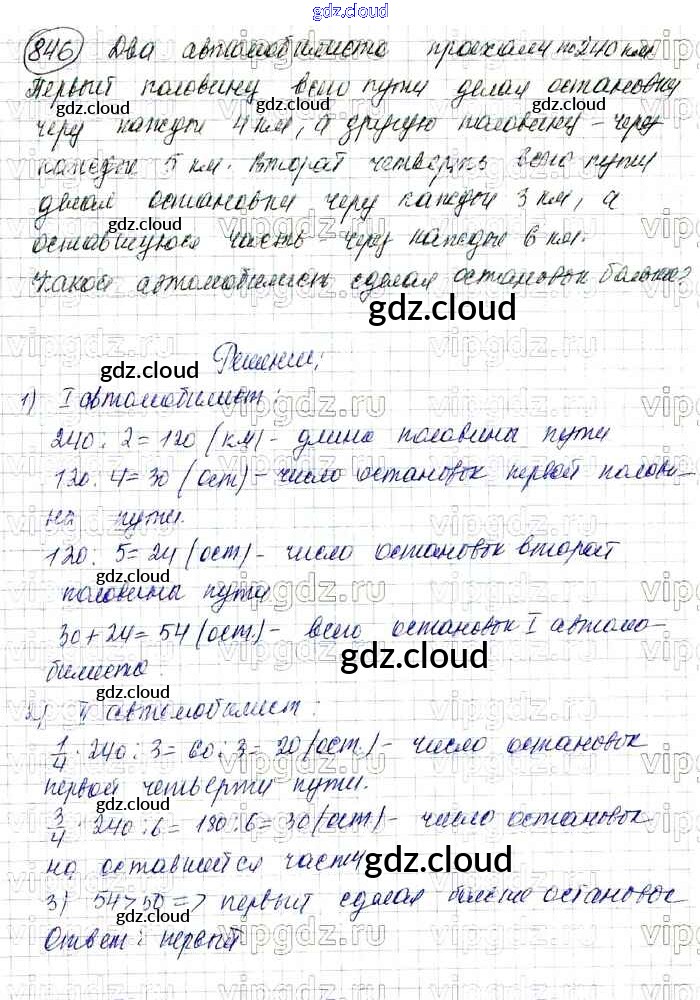 gdz.cloud
846 Два автомобилиста проехали по 240 км.
Первый половину всего пути делал остановку
через каждые 4 км, а другую половину – через
каждые 5 км. Второй четверть всего пути
делал остановки через каждые 3 км, а
оставшуюся часть – через каждые 6 км.
Какой автомобилист сделал остановок больше?
Решение:
1) I автомобилист:
240 : 2 = 120 (км) – длина половины пути
120 : 4 = 30 (ост) – число остановок первой полови-
ны пути.
120 : 5 = 24 (ост) – число остановок второй
половины пути
30 + 24 = 54 (ост.) – всего остановок I автомо-
билиста.
2) II автомобилист:
1/4 · 240 : 3 = 60 : 3 = 20 (ост.) – число остановок
первой четверти пути.
3/4 · 240 : 6 = 180 : 6 = 30 (ост) – число остановок
на оставшейся части
3) 54 > 50 => первый сделал больше остановок
Ответ: первый